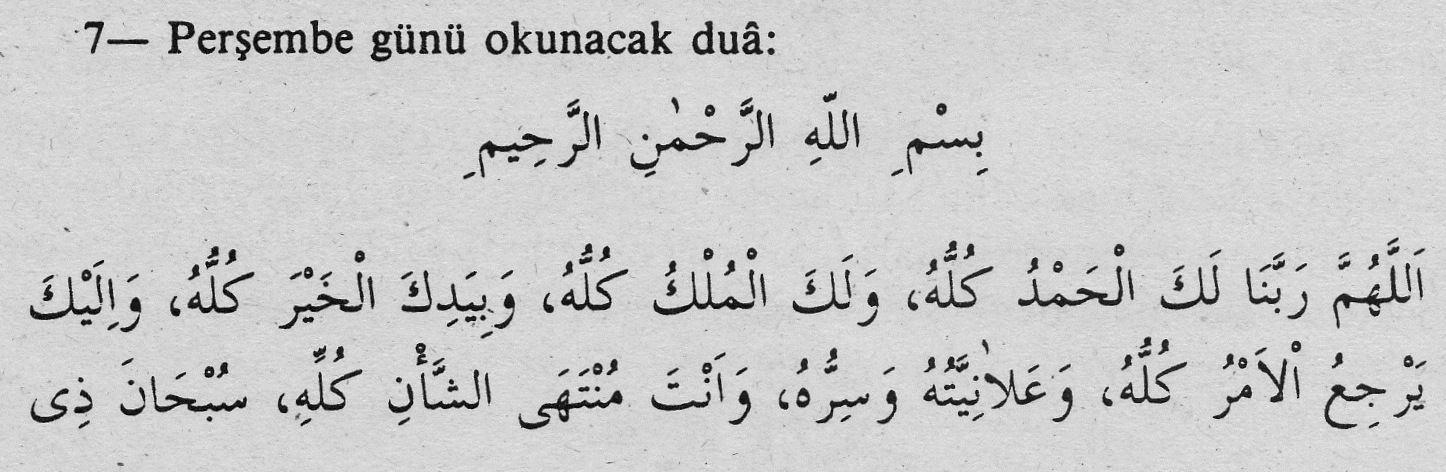 7— Perşembe günü okunacak duâ:
بِسْمِ اللّٰهِ الرَّحْمٰنِ الرَّحِيمِ
اَللَّهُمَّ رَبَّنَا لَكَ الْحَمْدُ كُلُّهُ، وَلَكَ الْمُلْكُ كُلُّهُ، وَبِيَدِكَ الْخَيْرَ كُلُّهُ، وَاِلَيْكَ
يَرْجِعُ اْلاَمْرُ كُلُّهُ، وَعَلاٰنِيَّتُهُ وَسِرُّهُ، وَاَنْتَ مُنْتَهَى الشَّأْنِ كُلِّهِ، سُبْحَانَ ذِى